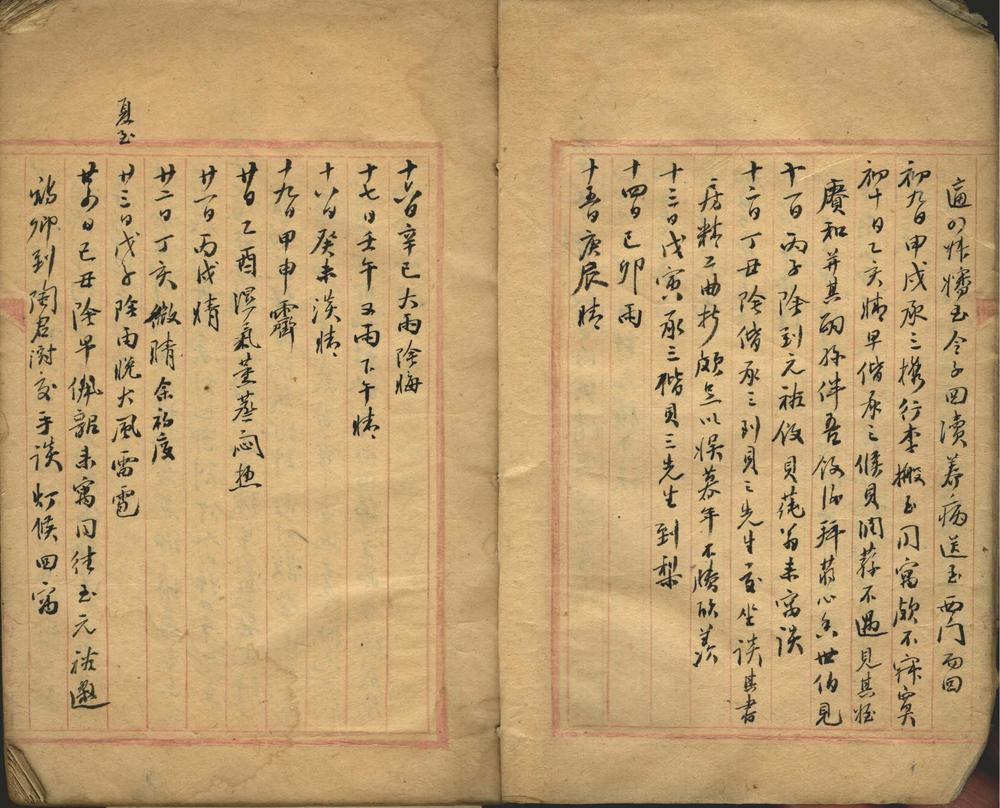 養病送至西門而回
初九日甲戌承三携行李搬至同寓頗不寂寞
初十日乙亥晴早偕承三候貝潤蓀不遇見其姪
賡和并其西孫伴吾飯後拜蔣心香世伯見
十一日丙子陰到元裕飯貝蒓翁来寓談
十二日丁丑陰偕承三到貝三先生家坐談其書
房精工曲折頗足以娛暮年不勝欣羨
十三日戊寅承三楷貝三先生到梨
十四日己卯雨
十五日庚辰晴
十六日辛巳大雨陰晦
十七日壬午又雨下午晴
十八日癸未淡晴
十九日甲申霽
廿日乙酉溼氣薰蒸悶熱
廿一日丙戌晴
廿二日丁亥微晴余初度
夏至
廿三日戊子陰雨晚大風雷雹
廿四日己丑陰早佩韶来寓同往至元裕邀
卿到陶君澍處手談灯候回寓